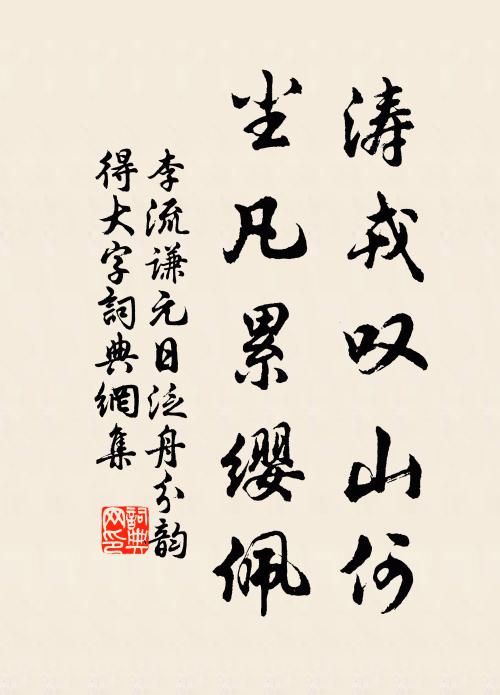 涛戎叹山何
尘凡累缨佩
李流谦元日泛舟分韵
得大字詞典網集
詞典
网印